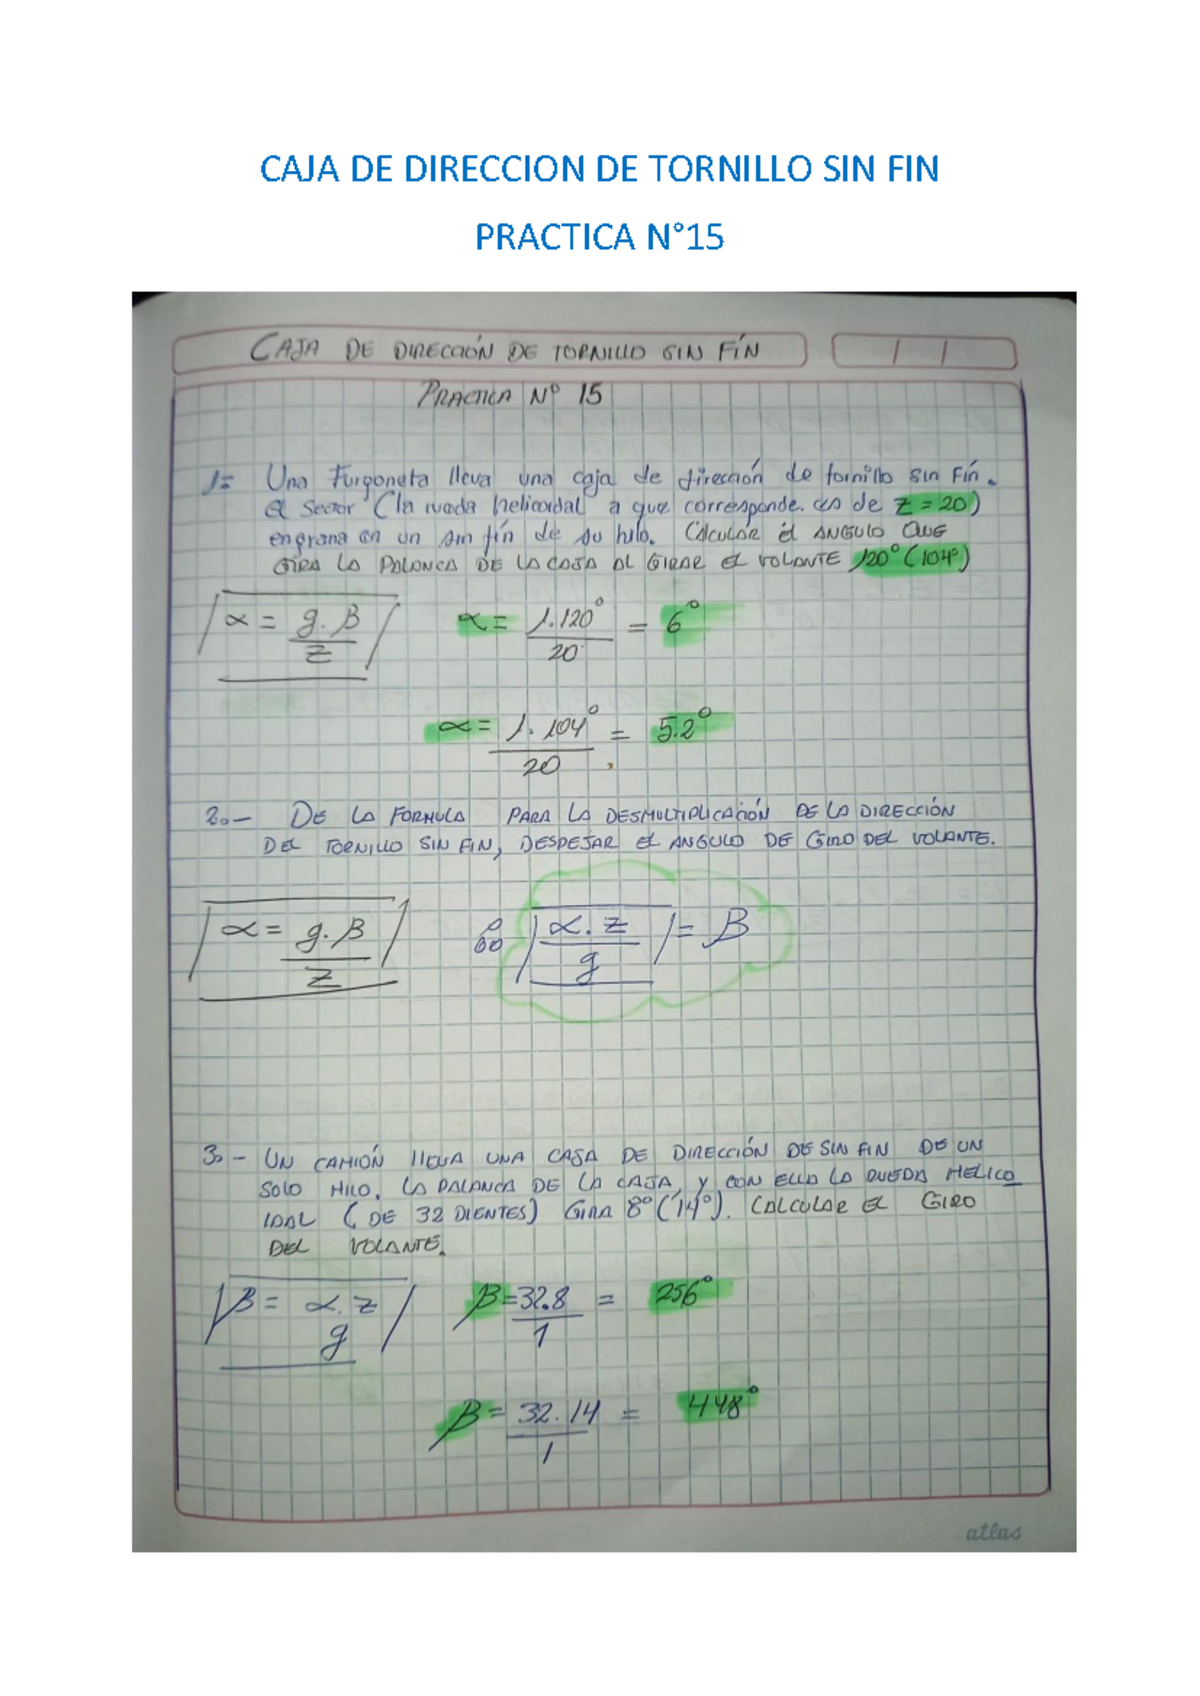 CAJA DE DIRECCION DE TORNILLO SIN FIN
PRACTICA N°15
CAJA DE DIRECCIÓN DE TORNILLO SIN FÍN / /
PRACTICA Nº 15
1.- Una Furgoneta lleva una caja de dirección de tornillo sin Fín.
El sector (la rueda helicoidal a que corresponde. es de z = 20)
engrana en un sin fín de su hilo. Calcular él ANGULO QUE
GIRA LA PALANCA DE LA CAJA AL GIRAR EL VOLANTE 120° (104°)
α = g. β / z α = 1.120° / 20 = 6°
α = 1. 104° / 20 = 5.2°
2.- DE LA FORMULA PARA LA DESMULTIPLICACIÓN DE LA DIRECCIÓN
DEL TORNILLO SIN FIN, DESPEJAR EL ANGULO DE GIRO DEL VOLANTE.
α = g. β / z α. z / g = β
3.- UN CAMIÓN LLEVA UNA CAJA DE DIRECCIÓN DE SIN FIN DE UN
SOLO HILO. LA PALANCA DE LA CAJA, Y CON ELLA LA RUEDA HELICO
IDAL (DE 32 DIENTES) GIRA 8° (14°). CALCULAR EL GIRO
DEL VOLANTE.
β = α. z / g β = 32.8 / 1 = 256°
β = 32. 14 / 1 = 448°
atlas